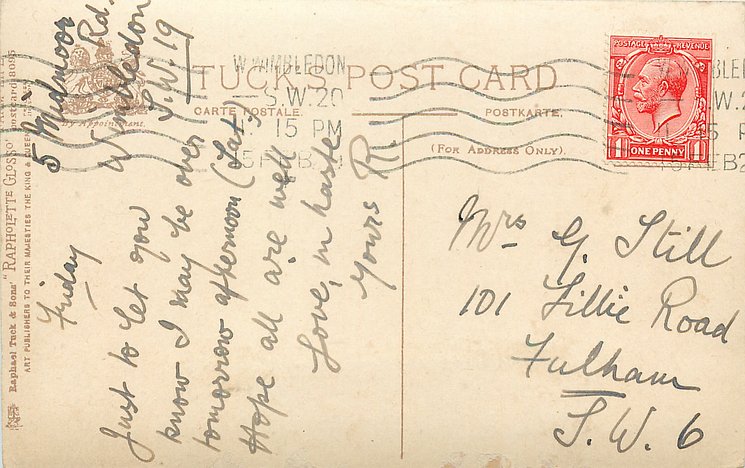 TUCK'S POST CARD
CARTE POSTALE.
POSTKARTE.
(FOR ADDRESS ONLY).
By Appointment.
Raphael Tuck & Sons' "RAPHOLETTE GLOSSO" Postcard 8095
ART PUBLISHERS TO THEIR MAJESTIES THE KING
W.WIMBLEDON
S.W.20
15 PM
FEB
POSTAGE REVENUE
ONE PENNY
5 Midmoor
Rd.
Wimbledon
S.W.19
Friday
Just to let you
know I may be over
tomorrow afternoon (Sat.)
Hope all are well
Love, in haste
Yours R.
Mrs G. Still
101 Lillie Road
Fulham
S.W. 6